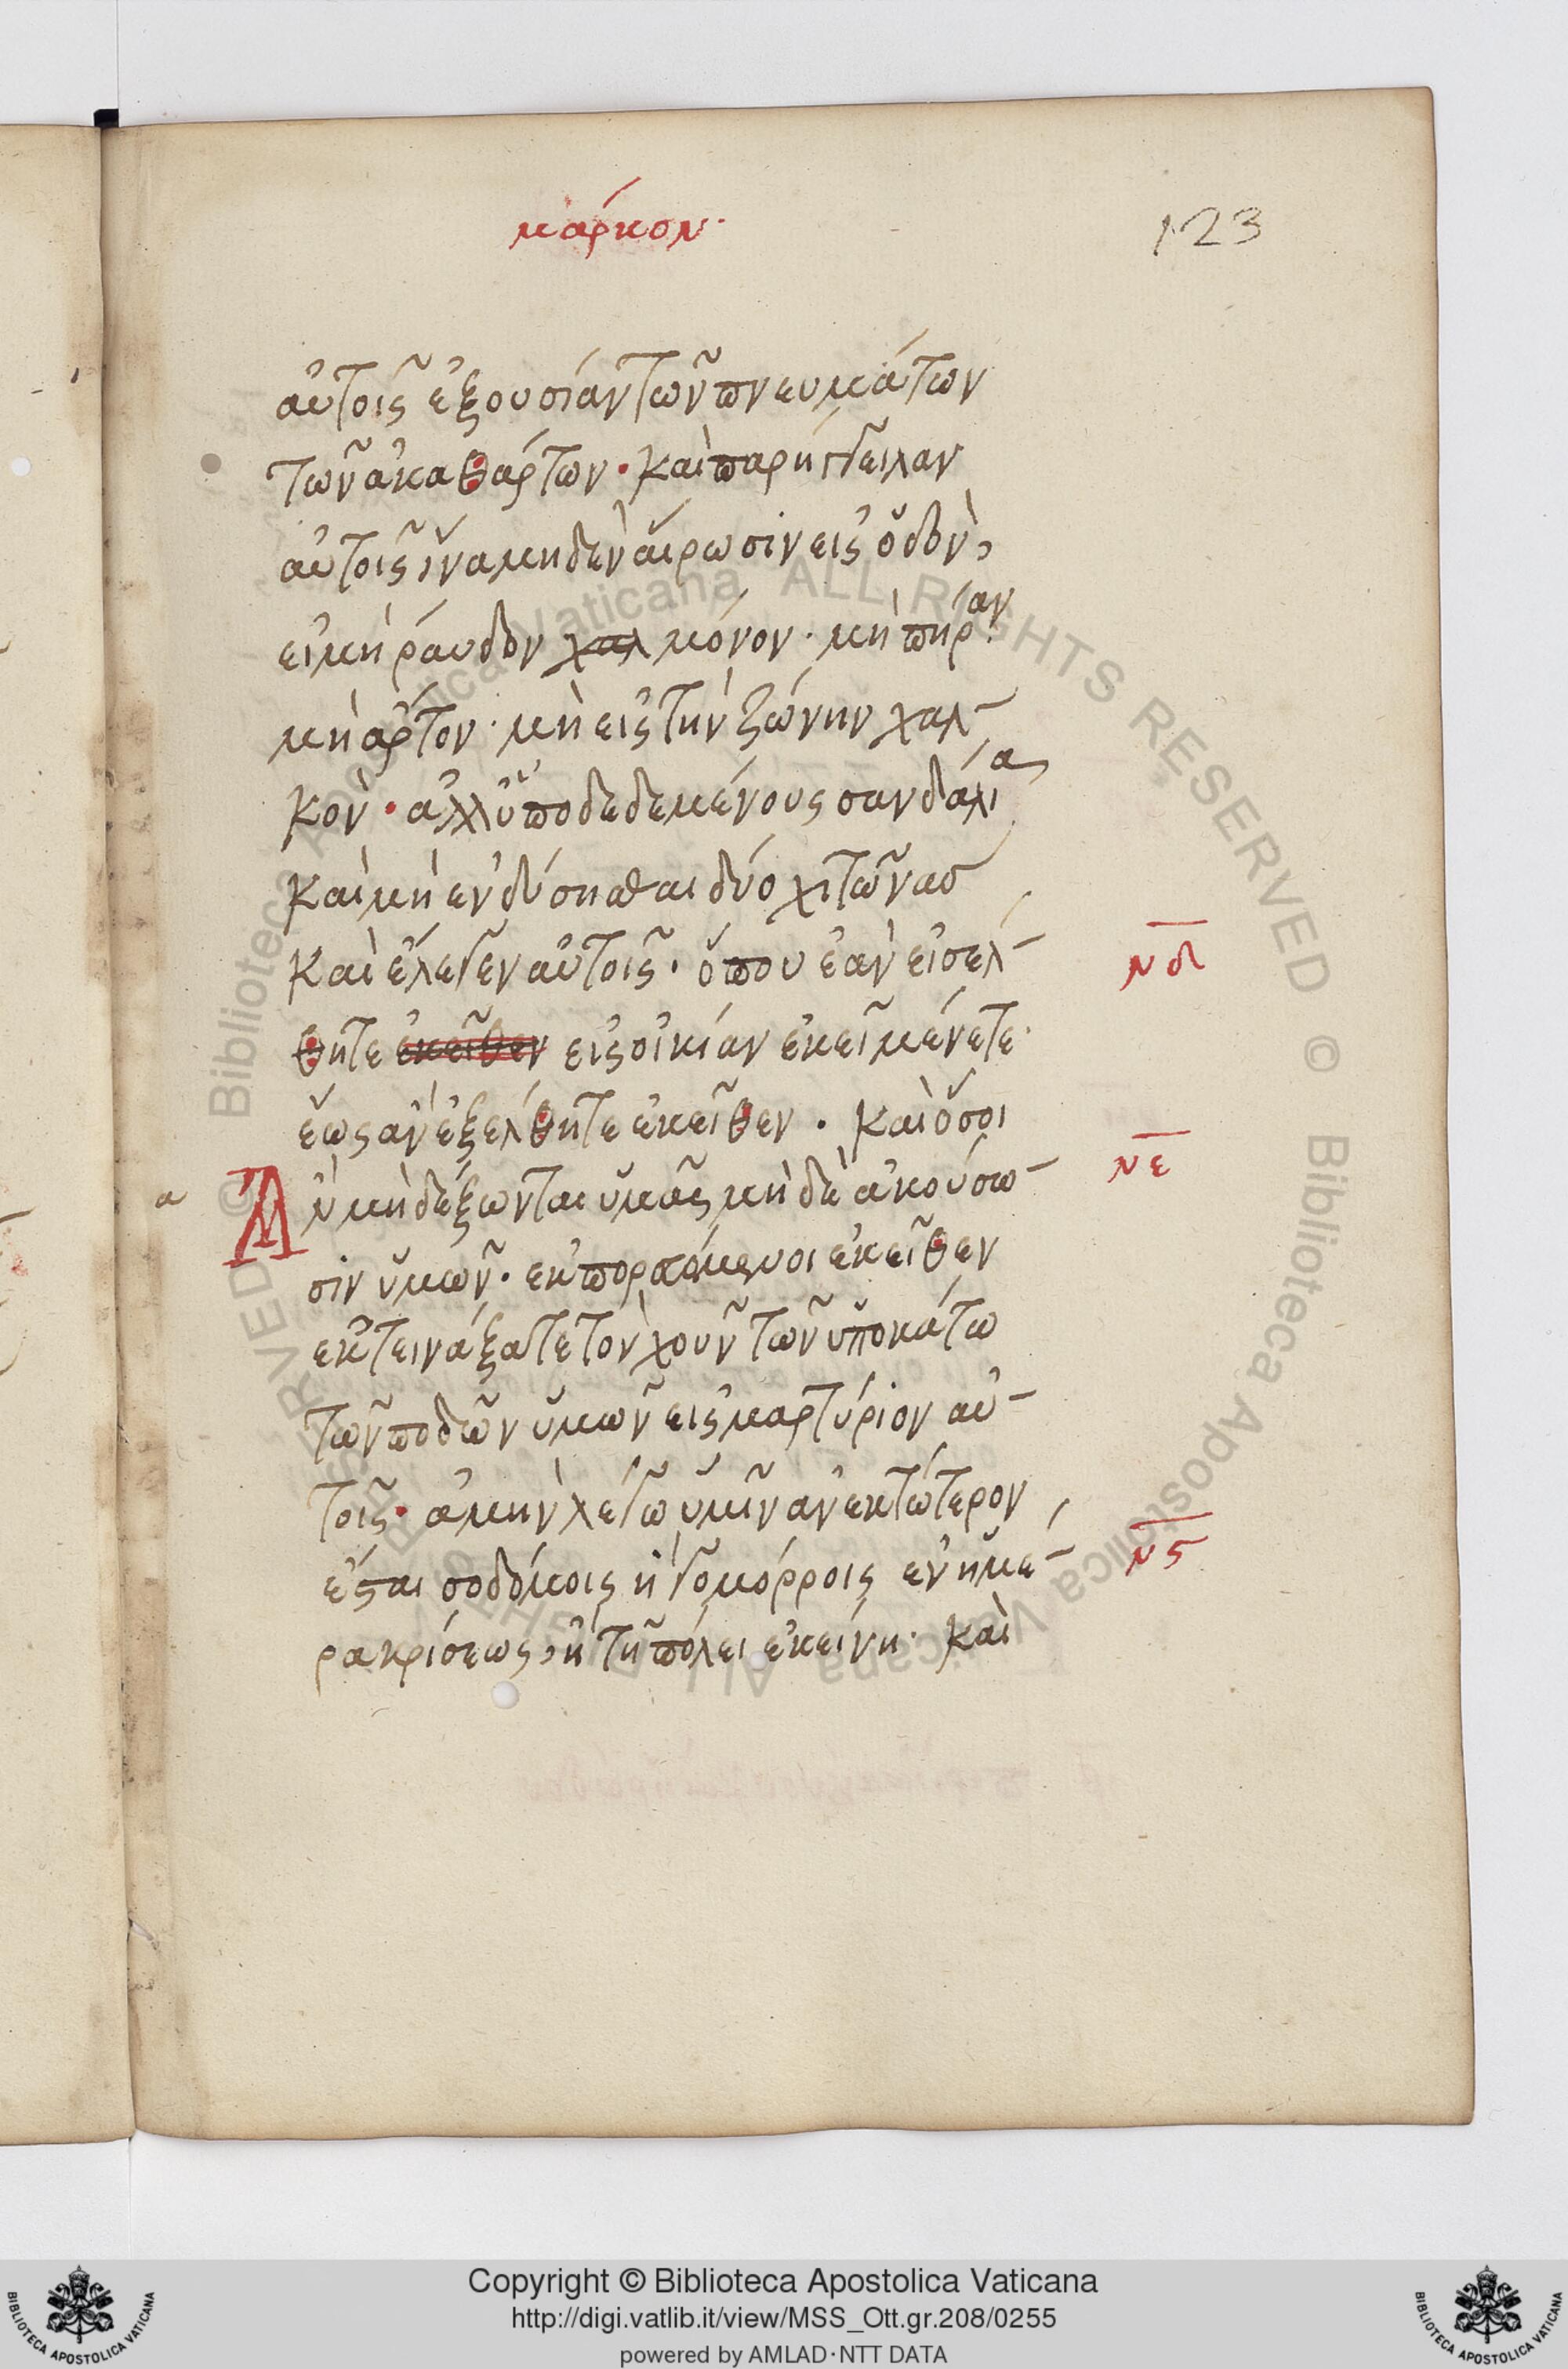 μάρκον·
123
αὐτοῖς ἐξουσίαν τῶν πνευμάτων
τῶν ἀκαθάρτων · καὶ παρήγγειλαν
αὐτοῖς ἵνα μηδὲν αἴρωσιν εἰς ὁδὸν,
εἰ μὴ ράυδον χαλ μόνον · μὴ πήραν ·
μὴ ἄρτον · μὴ εἰς τὴν ζώνην χαλ-
κὸν · ἀλλ ὑποδεδεμένους σανδάλια
καὶ μὴ ἐνδύσησθαι δύο χιτῶνασ
καὶ ἔλεγεν αὐτοῖς · ὅπου ἐὰν εἰσέλ-
νδ
θητε ἐκεῖθεν εἰς οἰκίαν ἐκεῖ μένετε·
ἕως ἂν ἐξέλθητε ἐκεῖθεν · καὶ ὅσοι
νε
α
Ἂν μὴ δέξωνται ὑμᾶς μὴδὲ ἀκούσω-
σιν ὑμῶν · ἐκπορευόμενοι ἐκεῖθεν
ἐκτεινάξατε τὸν χοῦν τῶν ὑποκάτω
τῶν ποδῶν ὑμῶν εἰς μαρτύριον αὐ-
τοῖς · ἀμὴν λέγω ὑμῖν ἀνεκτώτερον
ἔσται σοδόμοις ἢ γομόρροις ἐν ἡμέ-
νϛ
ρα κρίσεως, ἢ τῇ πόλει ἐκείνη · καὶ
© Biblioteca Apostolica Vaticana ALL RIGHTS RESERVED © Biblioteca Apostolica Vaticana ALL RIGHTS RESERVED
BIBLIOTECA APOSTOLICA VATICANA
Copyright © Biblioteca Apostolica Vaticana
http://digi.vatlib.it/view/MSS_Ott.gr.208/0255
powered by AMLAD·NTT DATA
BIBLIOTECA APOSTOLICA VATICANA